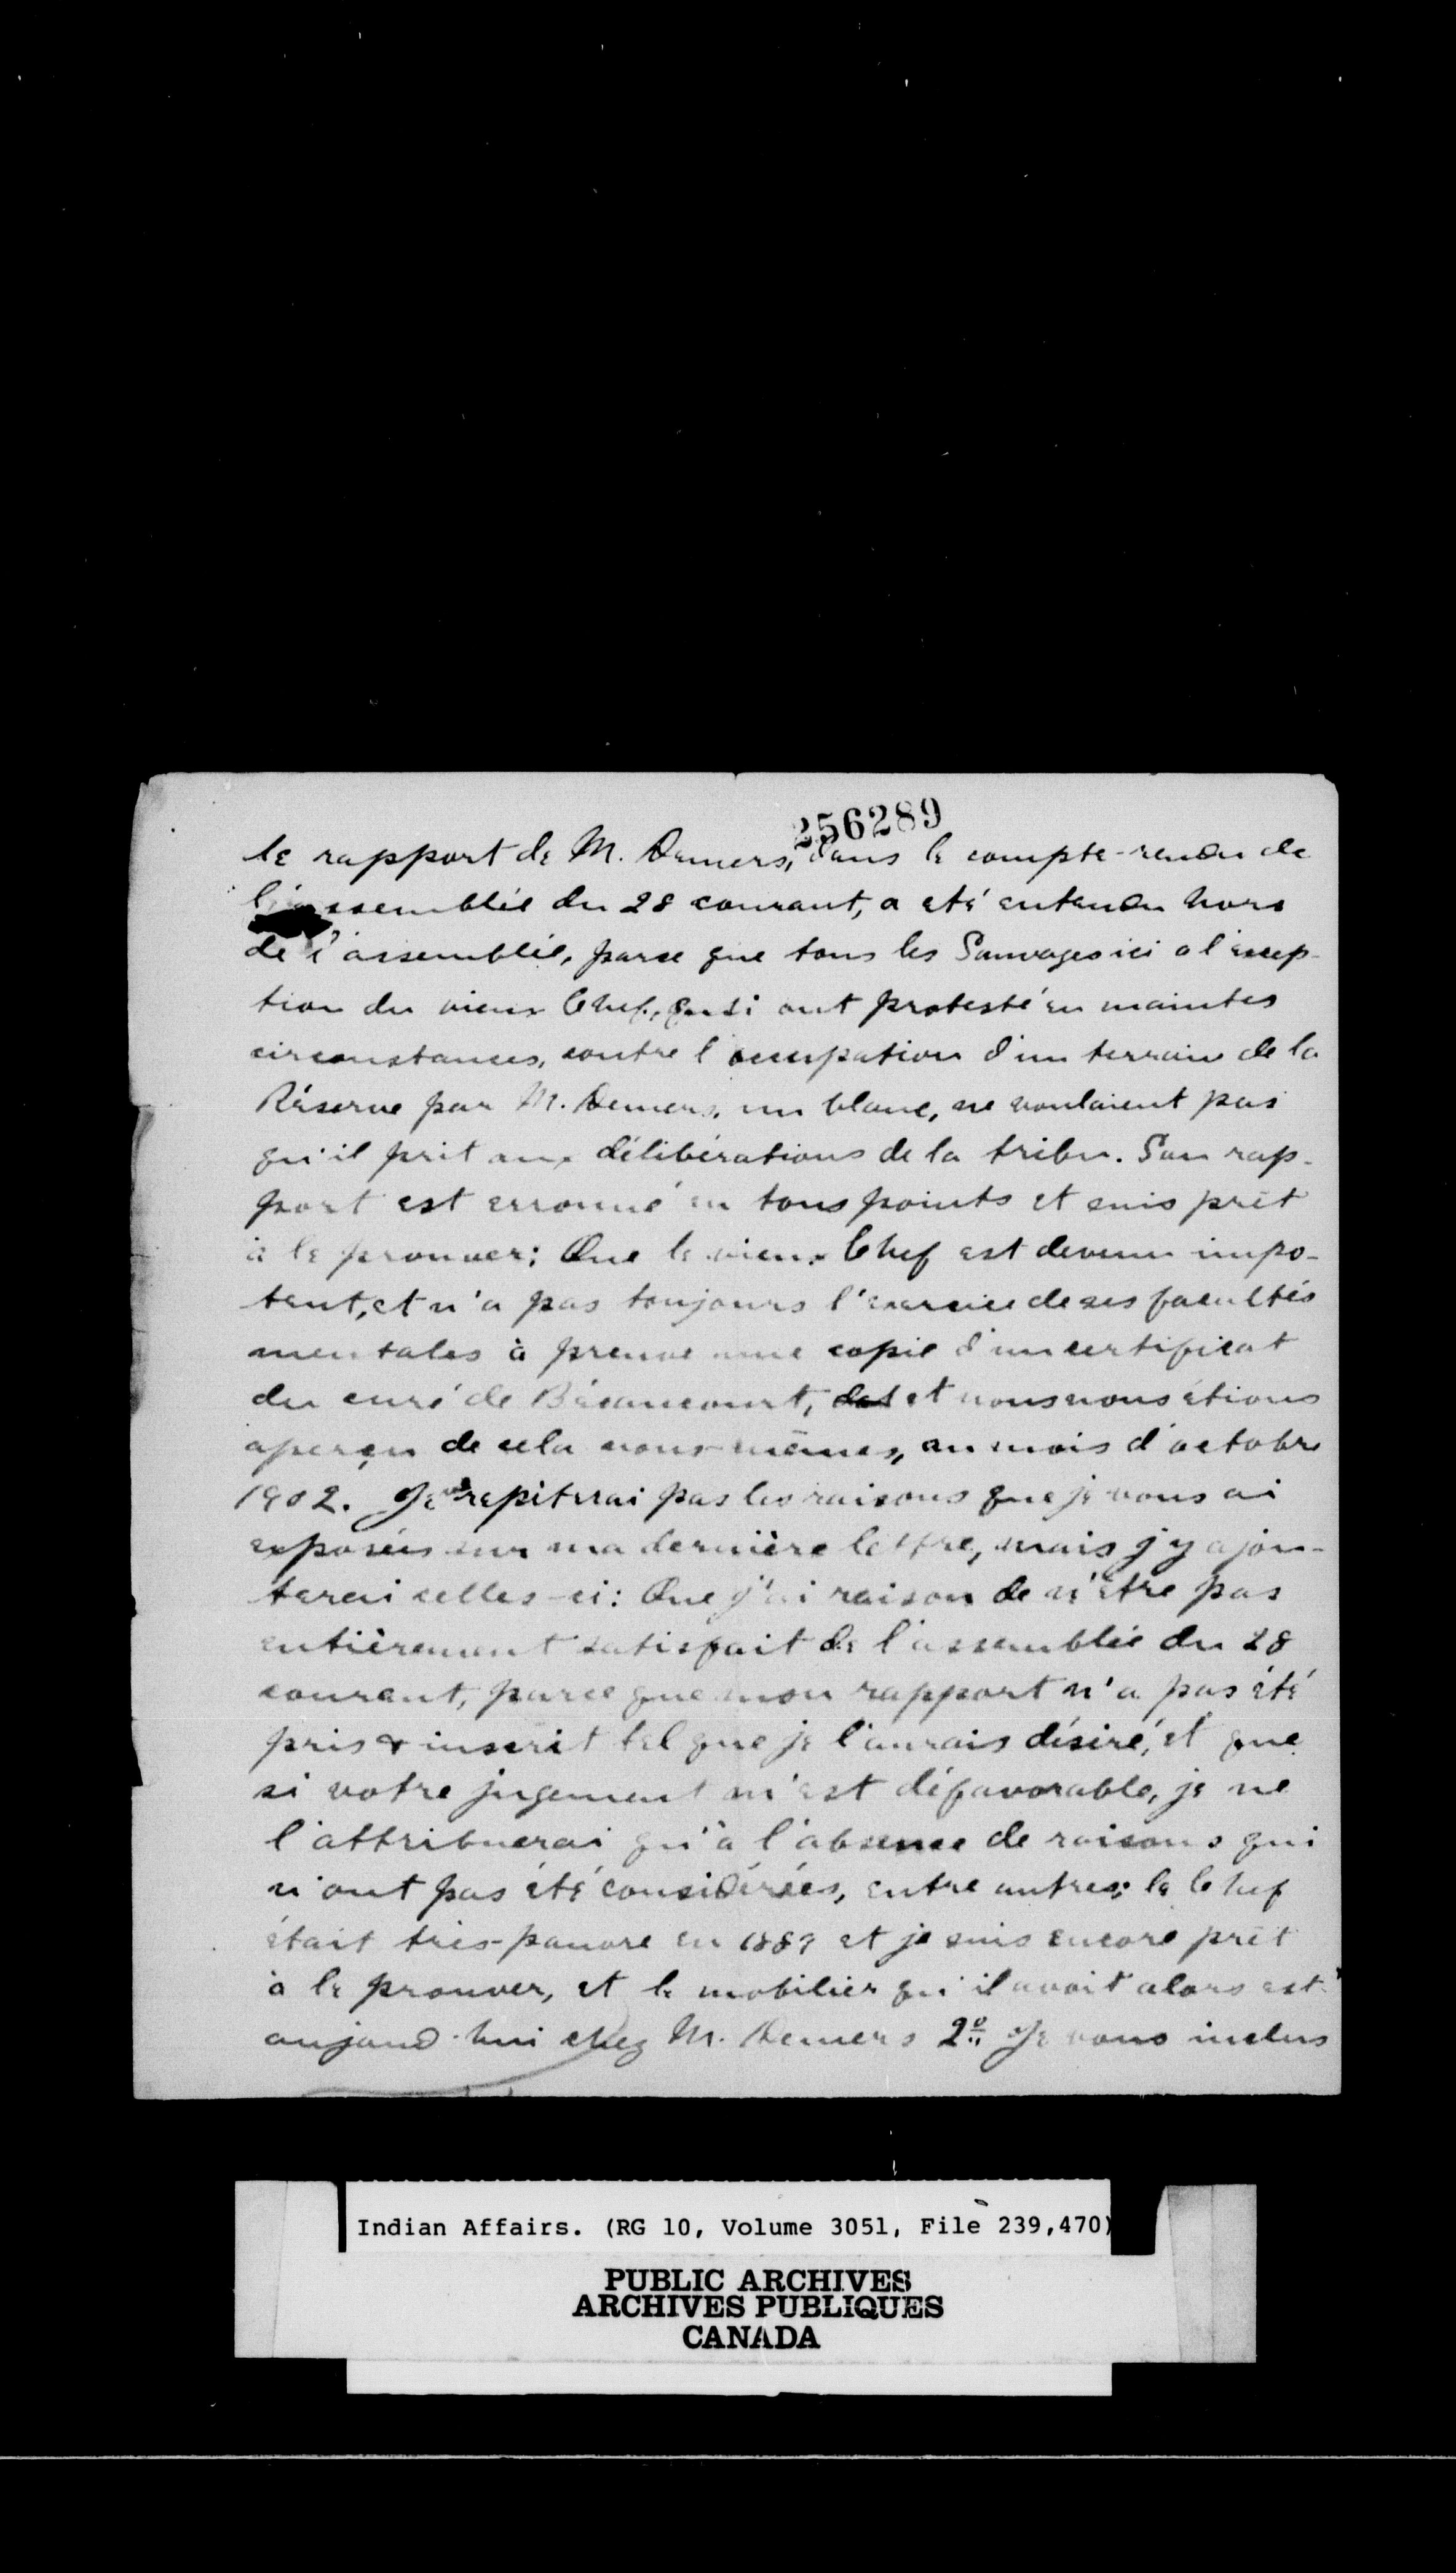 256289
le rapport de M. Demers, dans le compte-rendu de
l'assemblée du 28 courant, a été entendu hors
de l'assemblée, parce que tous les Sauvages ici a l'excep-
tion du vieux Chef, qui ont protesté en maintes
circonstances, contre l'occupation d'un terrain de la
Réserve par M. Demers, un blanc, ne voulaient pas
qu'il prit aux délibérations de la tribu. Son rap-
port est erronné en tous points et suis prêt
à le prouver; Que le vieux Chef est devenu impo-
tent, et n'a pas toujours l'exercice de ses facultés
mentales à preuve une copie d'un certificat
du curé de Bécancourt, et nous nous étions
aperçu de cela nous-mêmes, au mois d'octobre
1902. Je ne repèterai pas les raisons que je vous ai
exposées sur ma dernière lettre, mais j'y ajou-
terai celles-ci: Que j'ai raison de n'être pas
entièrement satisfait de l'assemblée du 28
courant, parce que mon rapport n'a pas été
pris & inscrit tel que je l'aurais désiré, et que
si votre jugement m'est défavorable, je ne
l'attribuerai qu'à l'absence de raisons qui
n'ont pas été considérées, entre autres; le Chef
était très-pauvre en 1889 et je suis encore prêt
à le prouver, et le mobilier qu'il avait alors est
aujourd'hui chez M. Demers 2º Je vous inclus
Indian Affairs. (RG 10, Volume 3051, File 239,470)
PUBLIC ARCHIVES
ARCHIVES PUBLIQUES
CANADA